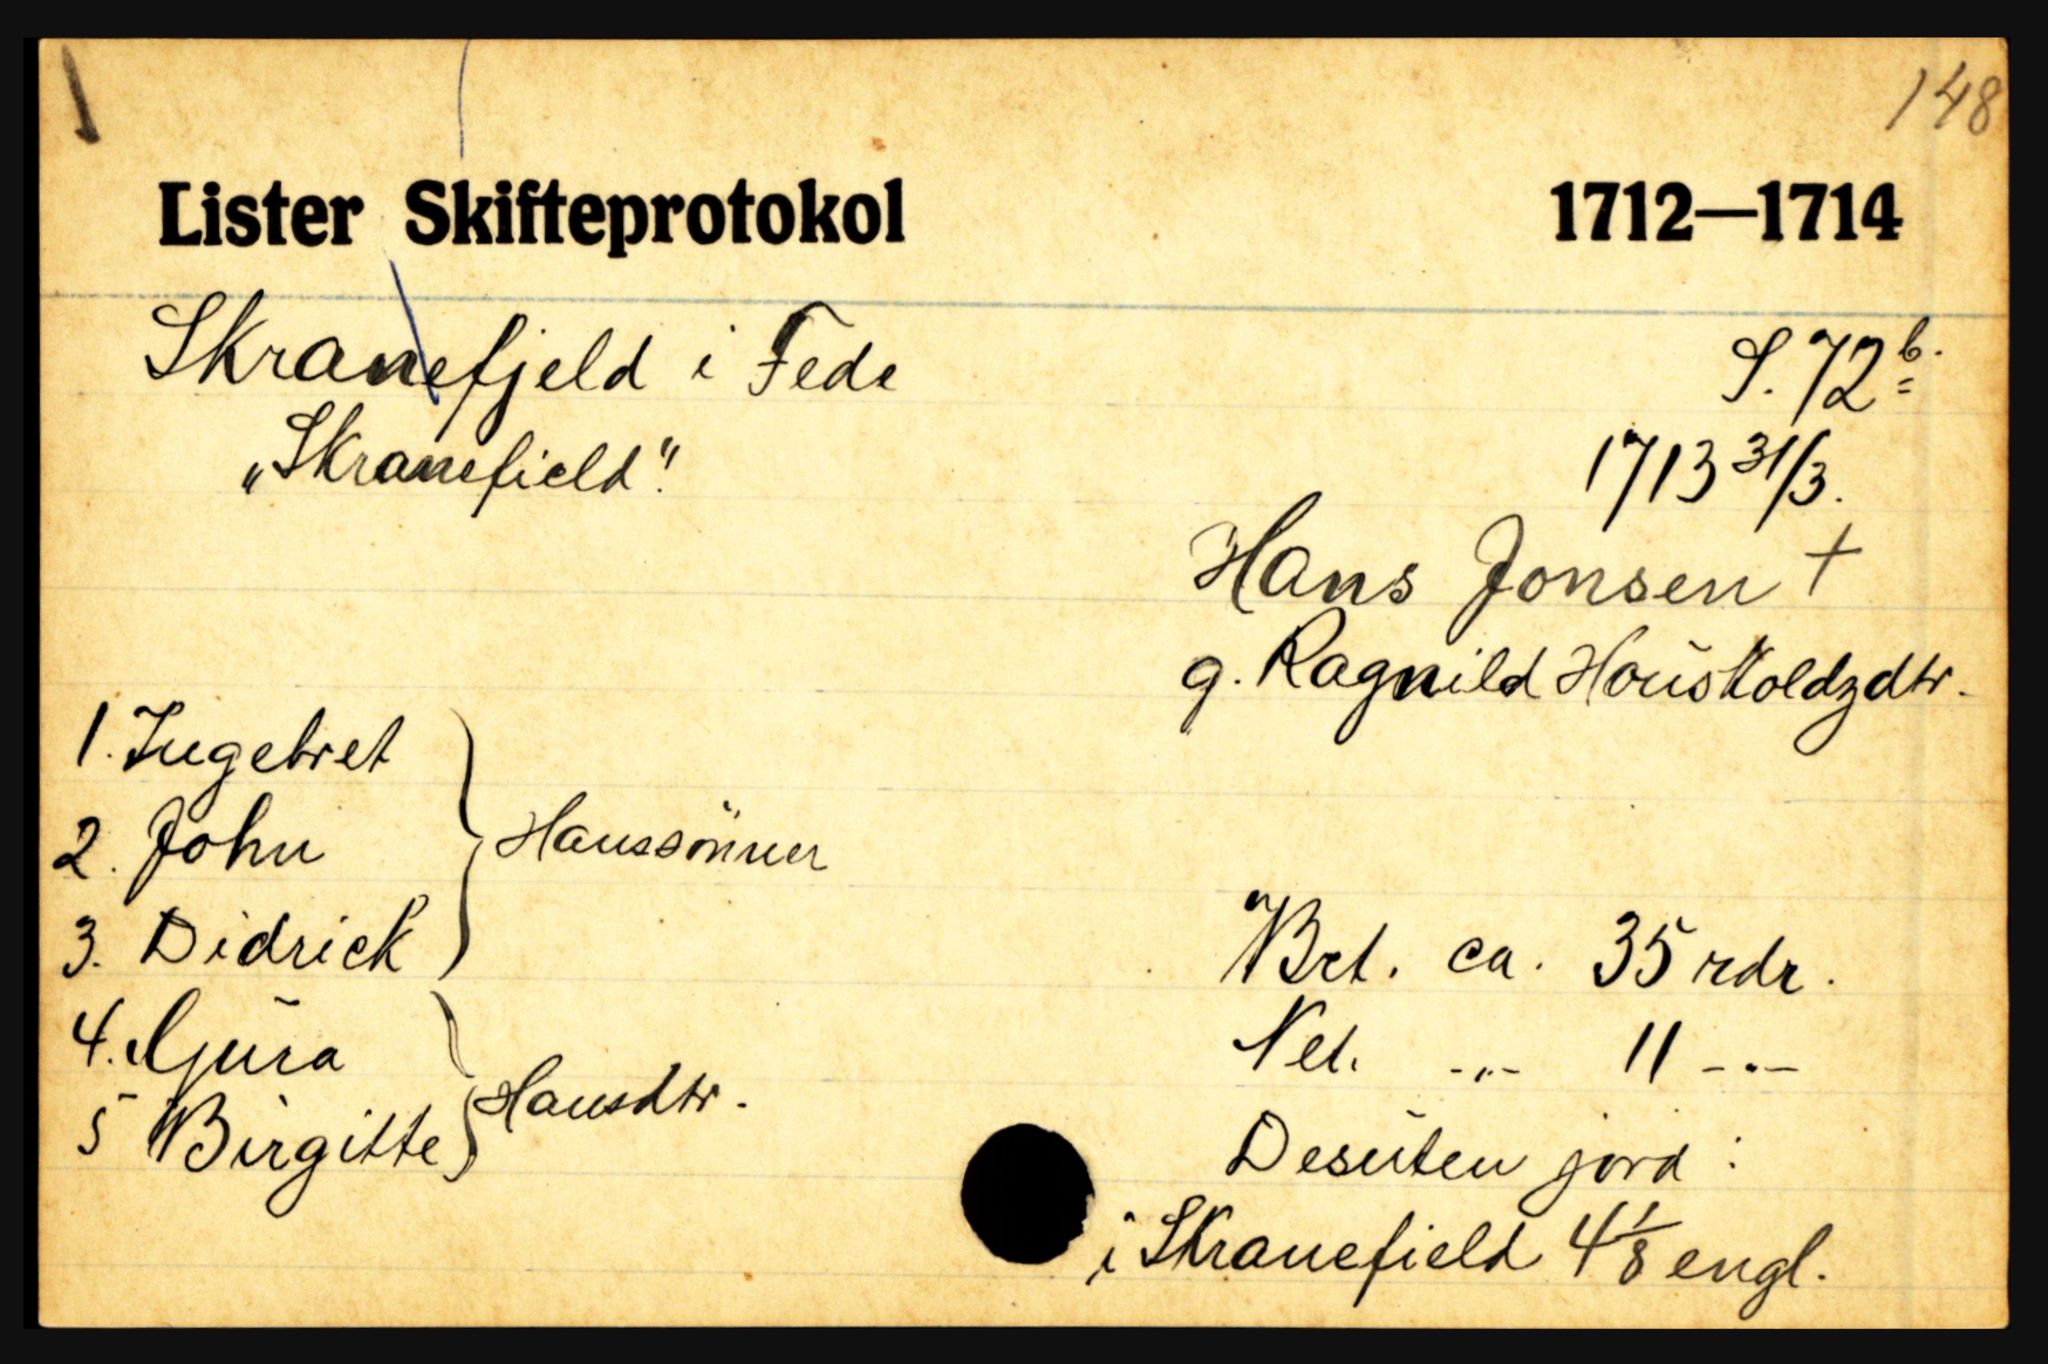 148
Lister Skifteprotokol 1712—1714
Skranefjeld i Fede
S. 72 b.
„Skranefield".
1713 31/3.
Hans Jonsen +
g. Ragnild Houskoldzdtr.
1. Ingebret
2. John
3. Didrick
Hanssönner
4. Gura
5 Birgitte
Hansdtr.
Brt. ca. 35 rdr.
Net. -„- 11 -„-
Desuten jord :
i Skranefield 4 1/8 engl.